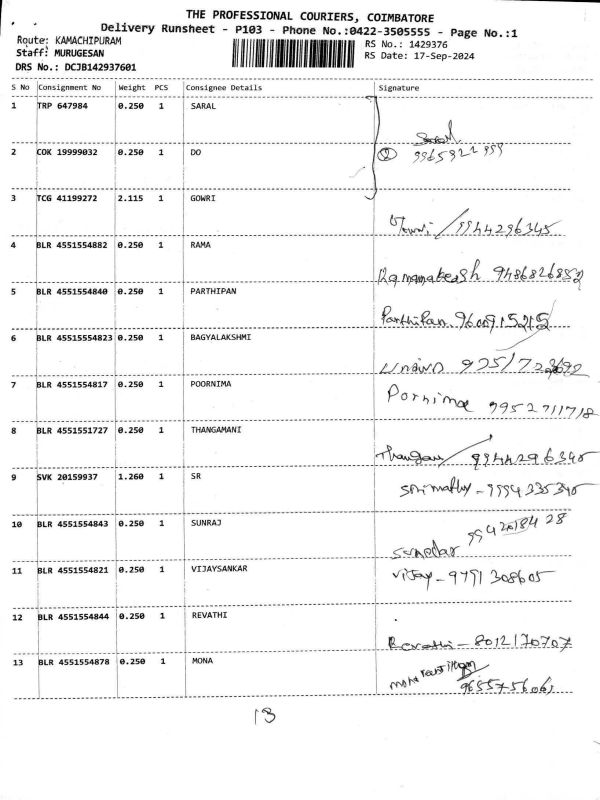 THE PROFESSIONAL COURIERS, COIMBATORE
Delivery Runsheet - P103 - Phone No.:0422-3505555 - Page No.:1
Route: KAMACHIPURAM RS No.: 1429376
Staff: MURUGESAN RS Date: 17-Sep-2024
DRS No.: DCJB142937601
S No Consignment No Weight PCS Consignee Details Signature
1 TRP 647984 0.250 1 SARAL
2 COK 19999032 0.250 1 DO
3 TCG 41199272 2.115 1 GOWRI /9944296345
4 BLR 4551554882 0.250 1 RAMA 9486826852
5 BLR 4551554840 0.250 1 PARTHIPAN Parthipan
6 BLR 45515554823 0.250 1 BAGYALAKSHMI
7 BLR 4551554817 0.250 1 POORNIMA Pornima 9952711718
8 BLR 4551551727 0.250 1 THANGAMANI 9944296345
9 SVK 20159937 1.260 1 SR
10 BLR 4551554843 0.250 1 SUNRAJ
11 BLR 4551554821 0.250 1 VIJAYSANKAR Vijay - 9791308605
12 BLR 4551554844 0.250 1 REVATHI Revathi - 8012170707
13 BLR 4551554878 0.250 1 MONA 9655756061
13